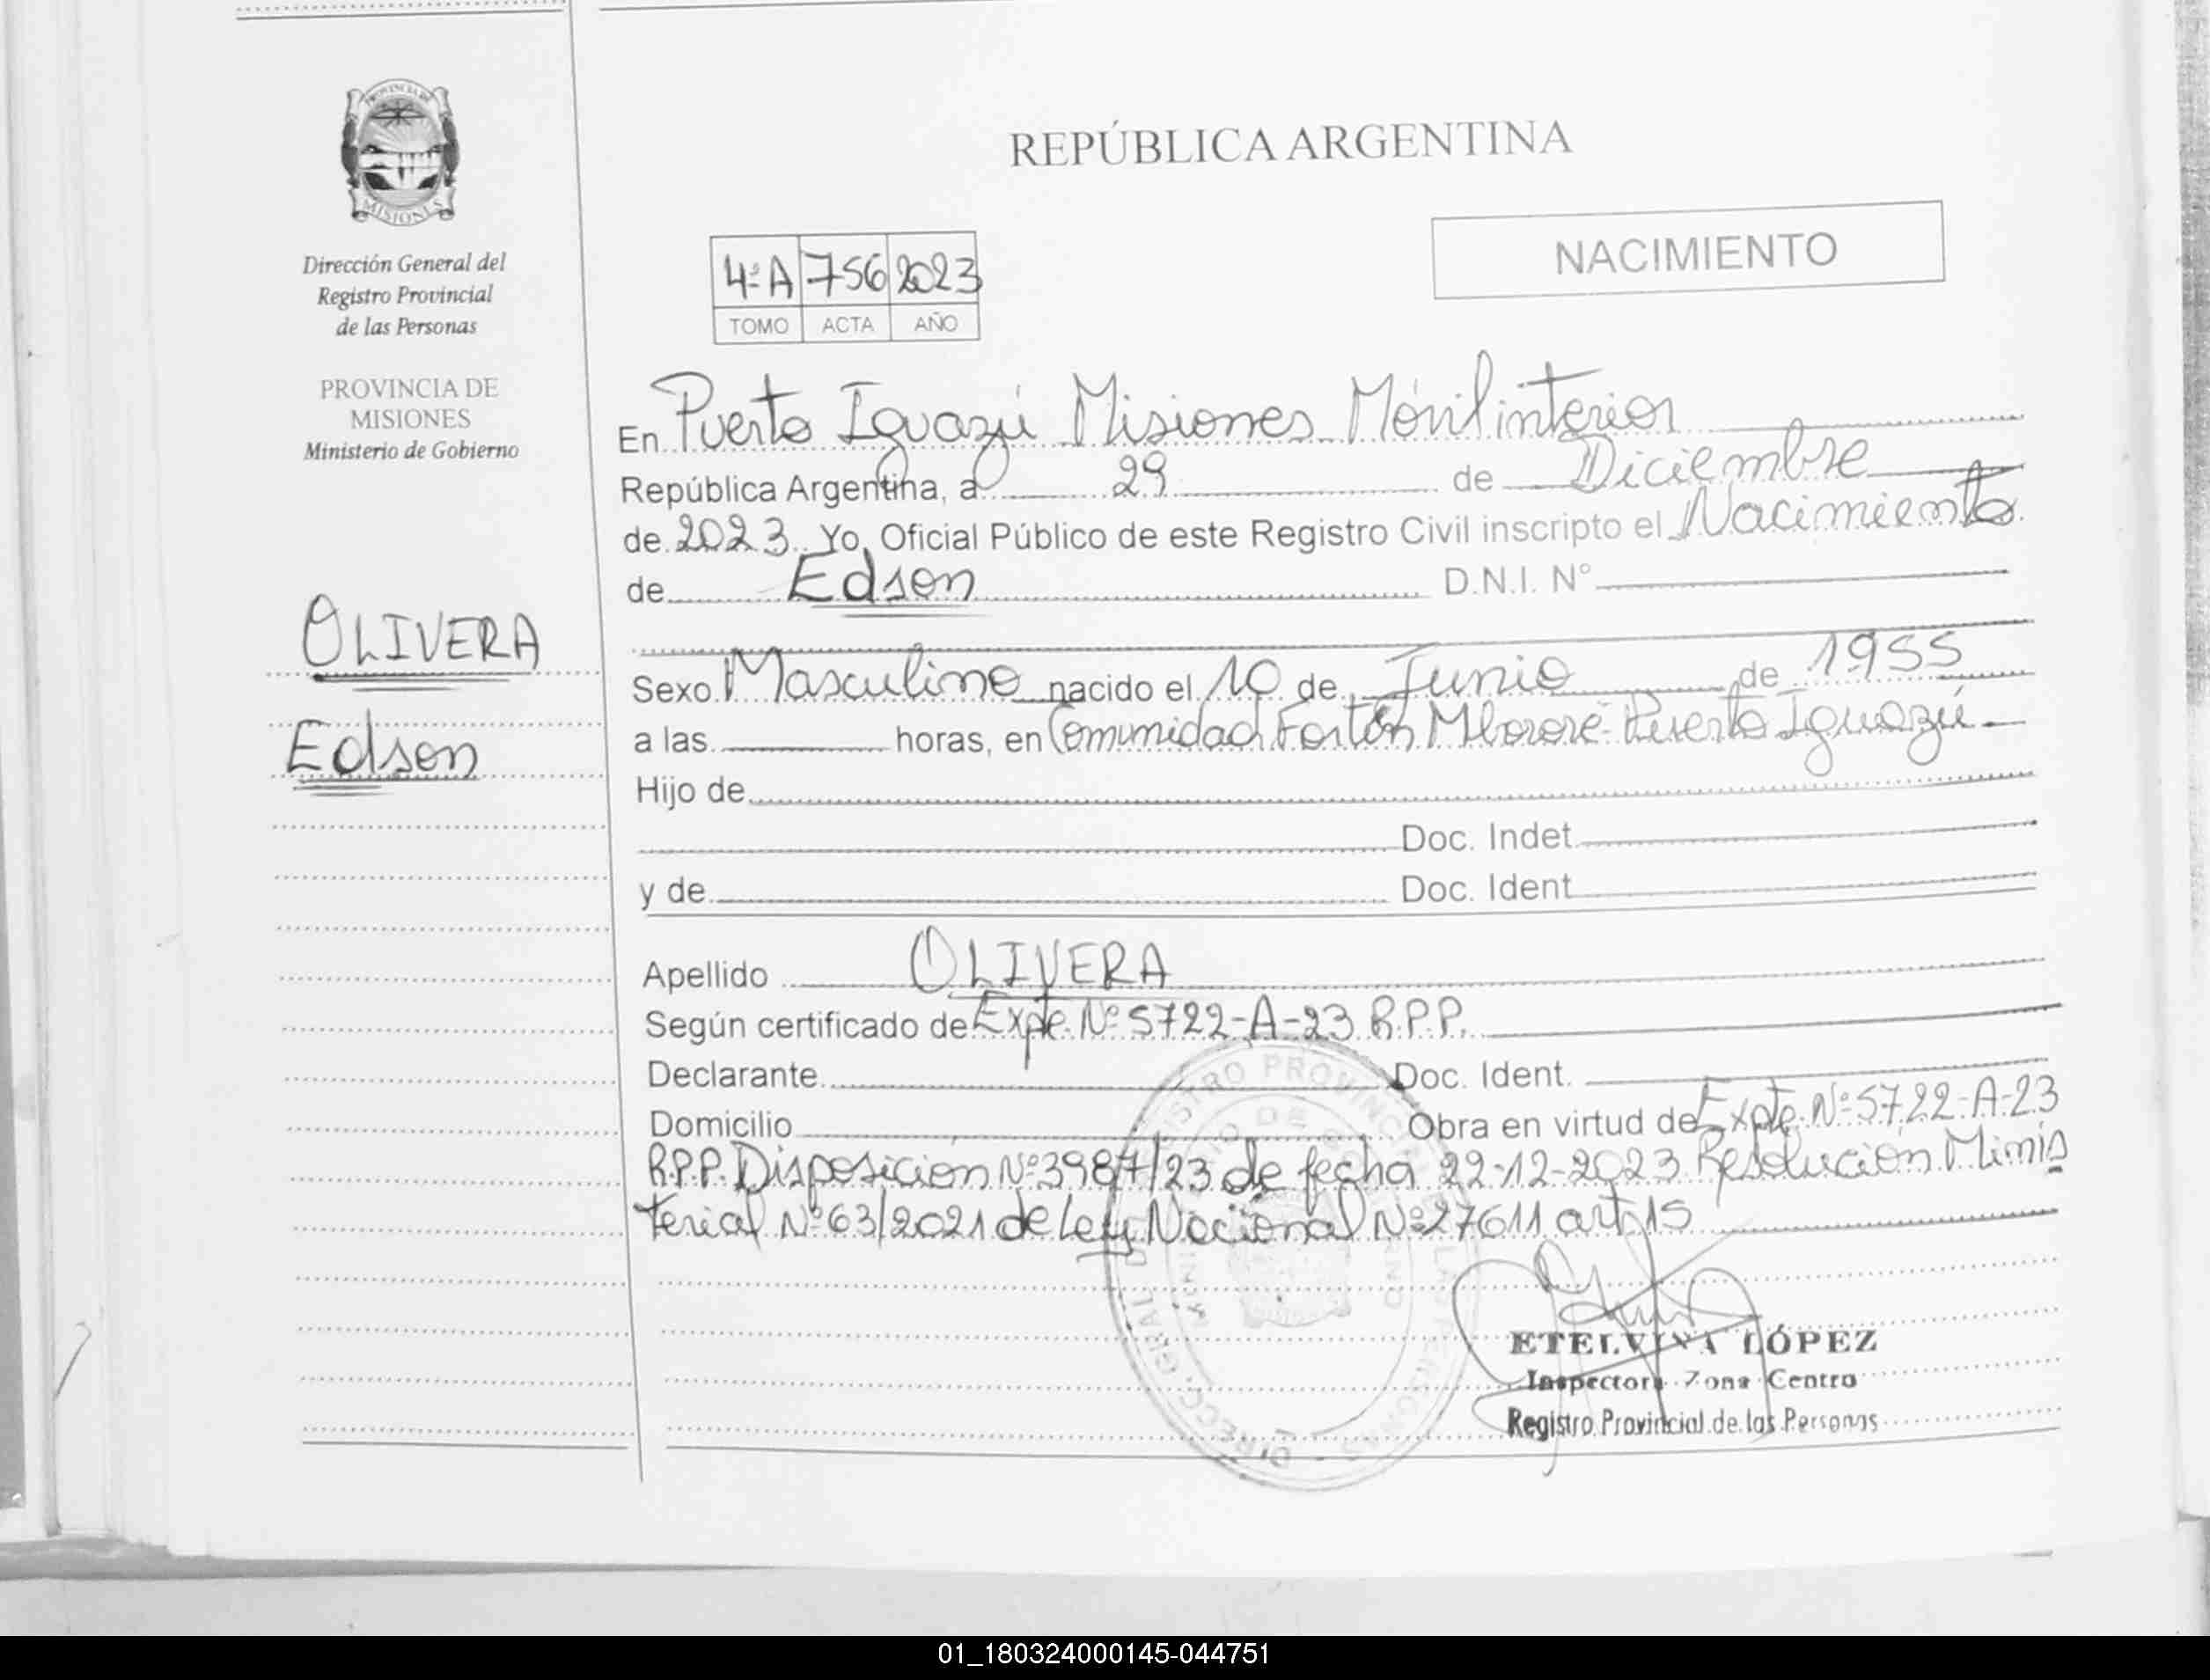 PROVINCIA DE
MISIONES
Dirección General del
Registro Provincial
de las Personas
PROVINCIA DE
MISIONES
Ministerio de Gobierno
OLIVERA
Edson
REPÚBLICA ARGENTINA
NACIMIENTO
4ºA 756 2023
TOMO ACTA AÑO
En Puerto Iguazú Misiones Móvil interior
República Argentina, a 29 de Diciembre
de 2023 Yo, Oficial Público de este Registro Civil inscripto el Nacimiento
de Edson D.N.I. N°
Sexo Masculino nacido el 10 de Junio de 1955
a las horas, en Comunidad Fortín Mbororé - Puerto Iguazú
Hijo de
Doc. Indet.
y de Doc. Ident.
Apellido OLIVERA
Según certificado de Expte. Nº 5722-A-23 R.P.P.
Declarante Doc. Ident.
Domicilio Obra en virtud de Expte. Nº 5722-A-23
R.P.P. Disposición Nº 3987/23 de fecha 22-12-2023 Resolución Minis
terial Nº 63/2021 de Ley Nacional Nº 27611 art 15
ETELVINA LÓPEZ
Inspectora Zona Centro
Registro Provincial de las Personas
01_180324000145-044751